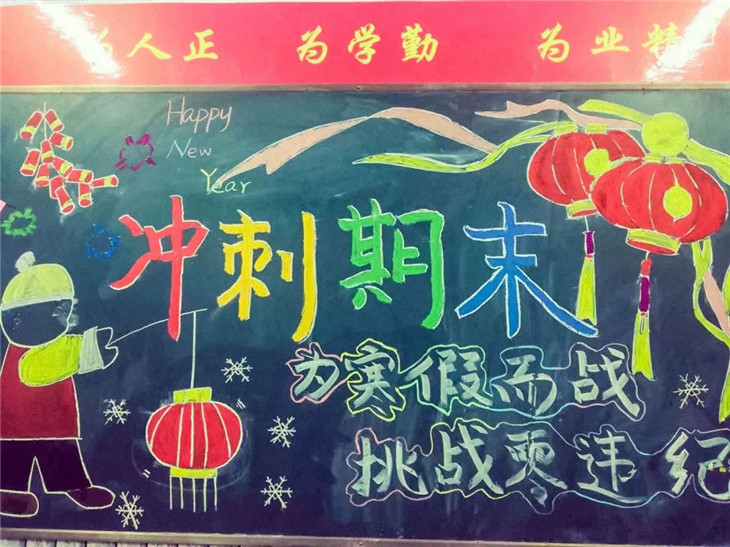 为人正 为学勤 为业精
Happy
New
Year
冲刺期末
为寒假而战
挑战零违纪